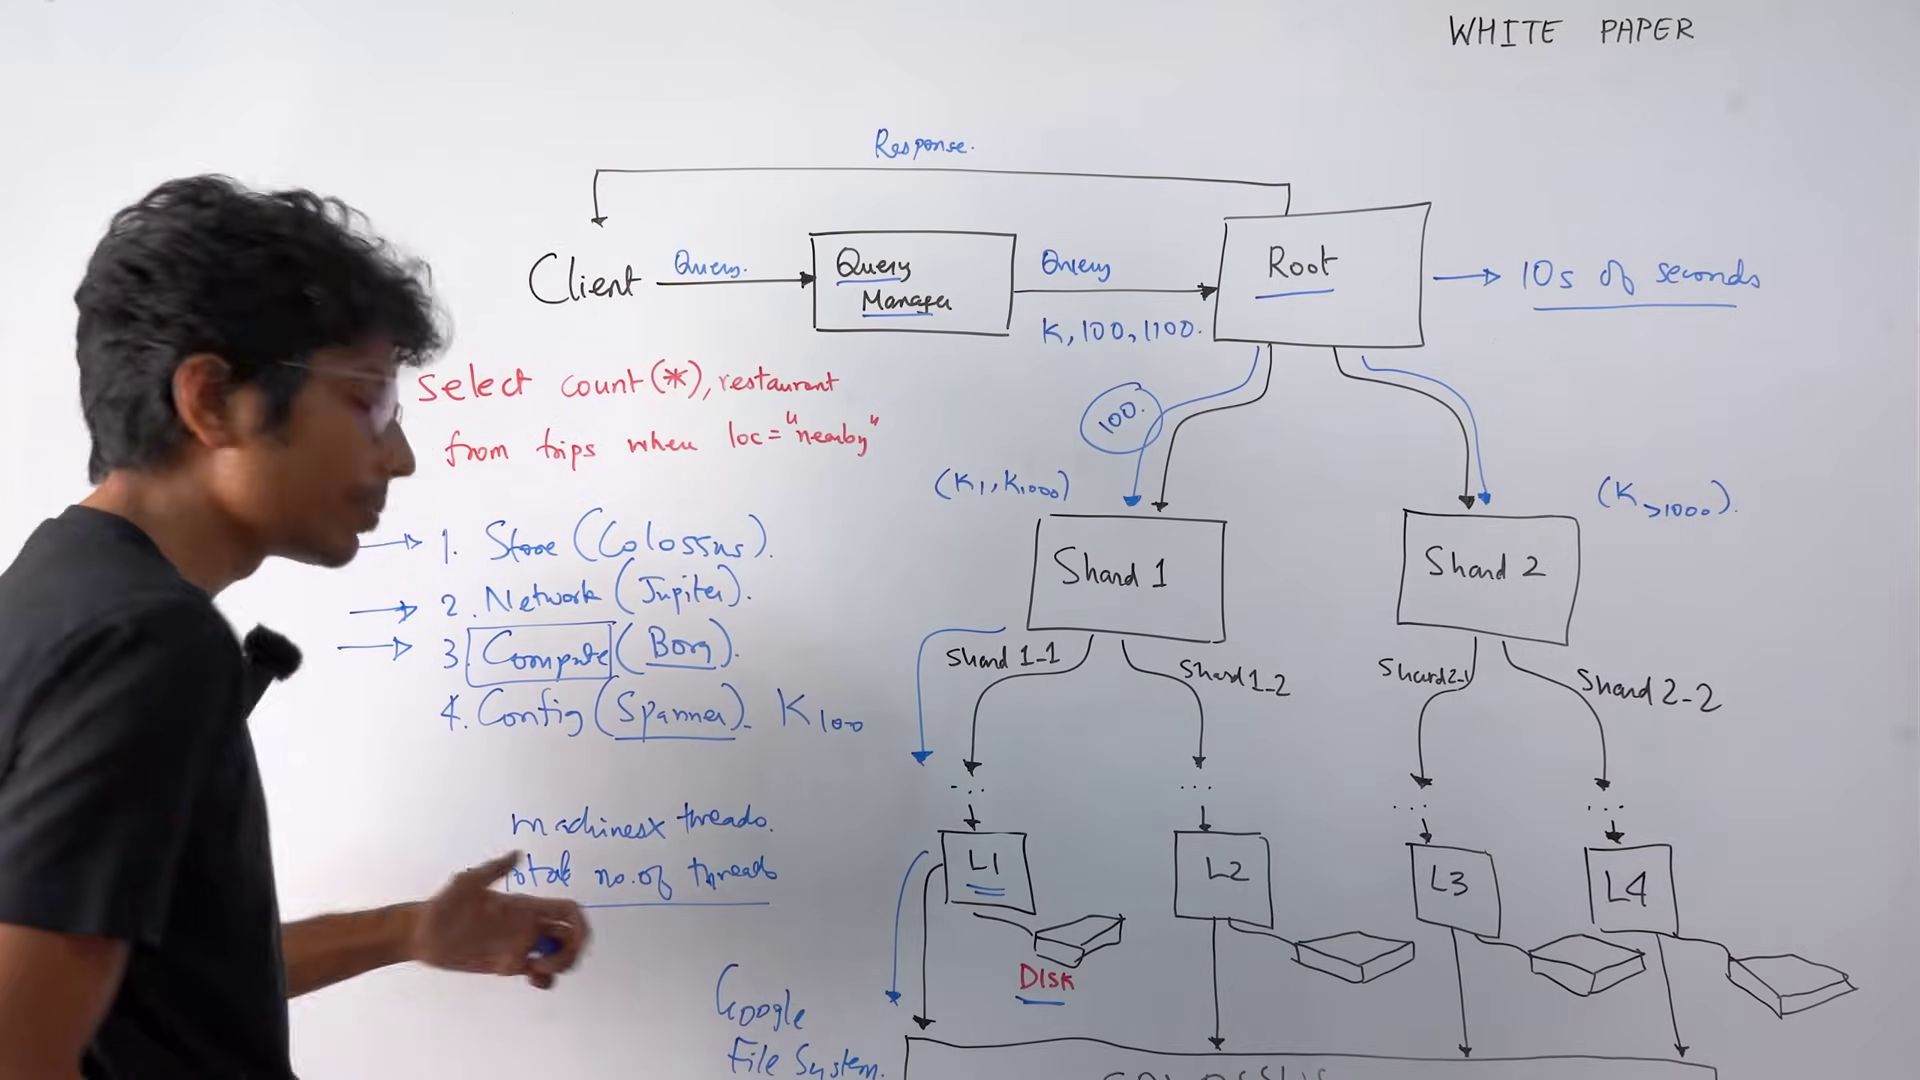 WHITE PAPER
Response.
Client
Query.
Query
Manager
Query
K, 100, 1100.
Root
10s of seconds
Select count(*), restaurant
from trips when loc = "nearby"
100.
(K1, K1000)
(K>1000).
1. Store (Colossus).
2. Network (Jupiter).
3. Compute (Borg).
4. Config (Spanner). K100
Shard 1
Shard 2
Shard 1-1
Shard 1-2
Shard 2-1
Shard 2-2
...
...
...
...
machines x threads.
total no. of threads
L1
L2
L3
L4
DISK
Google
File System.
COLOSSUS